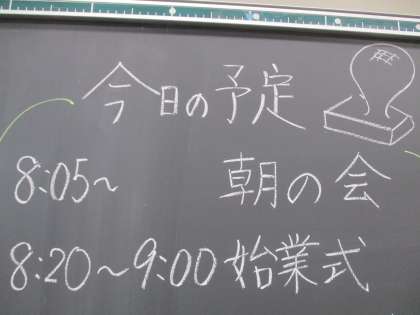 今日の予定
8:05～ 朝の会
8:20～9:00 始業式